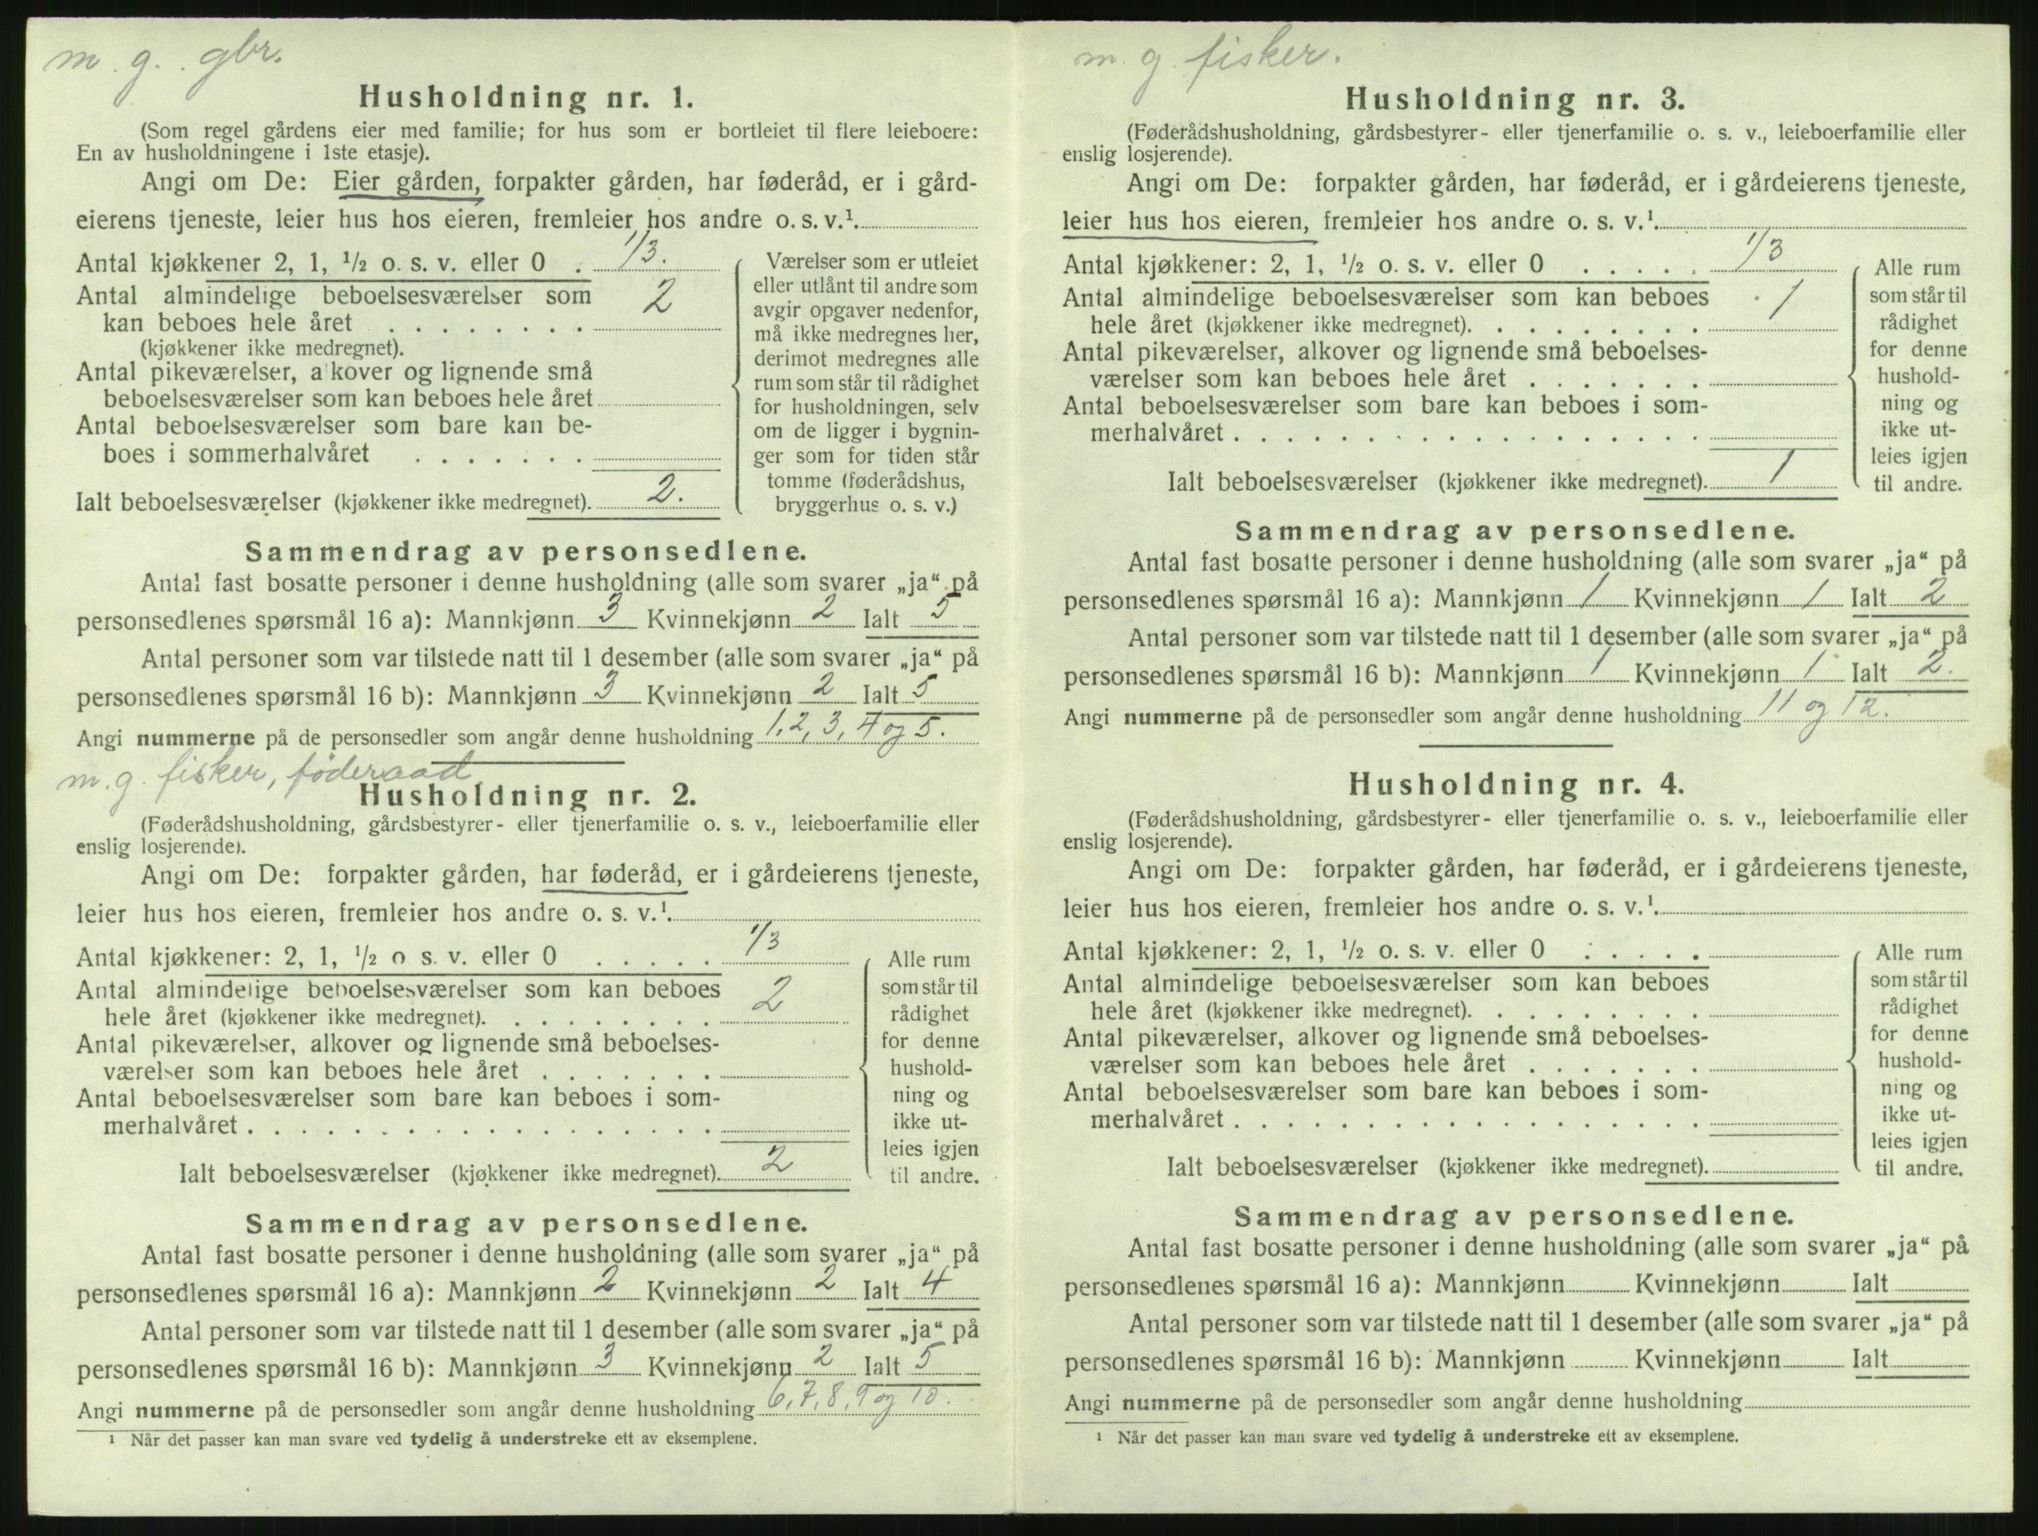 m. g. gbr.
Husholdning nr. 1.
(Som regel gårdens eier med familie; for hus som er bortleiet til flere leieboere:
En av husholdningene i 1ste etasje).
Angi om De: Eier gården, forpakter gården, har føderåd, er i gård-
eierens tjeneste, leier hus hos eieren, fremleier hos andre o. s. v.¹
Antal kjøkkener 2, 1, ½ o. s. v. eller 0 . 1/3.
Antal almindelige beboelsesværelser som 2
kan beboes hele året . . . . . . . .
(kjøkkener ikke medregnet).
Antal pikeværelser, alkover og lignende små
beboelsesværelser som kan beboes hele året
Antal beboelsesværelser som bare kan be-
boes i sommerhalvåret . . . . . . .
Ialt beboelsesværelser (kjøkkener ikke medregnet). 2.
Værelser som er utleiet
eller utlånt til andre som
avgir opgaver nedenfor,
må ikke medregnes her,
derimot medregnes alle
rum som står til rådighet
for husholdningen, selv
om de ligger i bygnin-
ger som for tiden står
tomme (føderådshus,
bryggerhus o. s. v.)
Sammendrag av personsedlene.
Antal fast bosatte personer i denne husholdning (alle som svarer „ja“ på
personsedlenes spørsmål 16 a): Mannkjønn 3 Kvinnekjønn 2 Ialt 5
Antal personer som var tilstede natt til 1 desember (alle som svarer „ja“ på
personsedlenes spørsmål 16 b): Mannkjønn 3 Kvinnekjønn 2 Ialt 5
Angi nummerne på de personsedler som angår denne husholdning 1, 2, 3, 4 og 5.
m. g. fisker, føderaad
Husholdning nr. 2.
(Føderådshusholdning, gårdsbestyrer- eller tjenerfamilie o. s. v., leieboerfamilie eller
enslig losjerende).
Angi om De: forpakter gården, har føderåd, er i gårdeierens tjeneste,
leier hus hos eieren, fremleier hos andre o. s. v.¹
Antal kjøkkener: 2, 1, ½ o s. v. eller 0 . . . . . 1/3
Antal almindelige beboelsesværelser som kan beboes 2
hele året (kjøkkener ikke medregnet). . . . . . . . .
Antal pikeværelser, alkover og lignende små beboelses-
værelser som kan beboes hele året . . . . . . .
Antal beboelsesværelser som bare kan beboes i som-
merhalvåret . . . . . . . . . . . . . . . . . .
Ialt beboelsesværelser (kjøkkener ikke medregnet). 2
Alle rum
som står til
rådighet
for denne
hushold-
ning og
ikke ut-
leies igjen
til andre.
Sammendrag av personsedlene.
Antal fast bosatte personer i denne husholdning (alle som svarer „ja“ på
personsedlenes spørsmål 16 a): Mannkjønn 2 Kvinnekjønn 2 Ialt 4
Antal personer som var tilstede natt til 1 desember (alle som svarer „ja“ på
personsedlenes spørsmål 16 b): Mannkjønn 3 Kvinnekjønn 2 Ialt 5
Angi nummerne på de personsedler som angår denne husholdning 6, 7, 8, 9 og 10.
¹ Når det passer kan man svare ved tydelig å understreke ett av eksemplene.
m. g. fisker.
Husholdning nr. 3.
(Føderådshusholdning, gårdsbestyrer- eller tjenerfamilie o. s. v., leieboerfamilie eller
enslig losjerende).
Angi om De: forpakter gården, har føderåd, er i gårdeierens tjeneste,
leier hus hos eieren, fremleier hos andre o. s. v.¹
Antal kjøkkener: 2, 1, ½ o. s. v. eller 0 . . . . . 1/3
Antal almindelige beboelsesværelser som kan beboes 1
hele året (kjøkkener ikke medregnet). . . . . . . . .
Antal pikeværelser, alkover og lignende små beboelses-
værelser som kan beboes hele året . . . . . . .
Antal beboelsesværelser som bare kan beboes i som-
merhalvåret . . . . . . . . . . . . . . . . . .
Ialt beboelsesværelser (kjøkkener ikke medregnet). 1
Alle rum
som står til
rådighet
for denne
hushold-
ning og
ikke ut-
leies igjen
til andre.
Sammendrag av personsedlene.
Antal fast bosatte personer i denne husholdning (alle som svarer „ja“ på
personsedlenes spørsmål 16 a): Mannkjønn 1 Kvinnekjønn 1 Ialt 2
Antal personer som var tilstede natt til 1 desember (alle som svarer „ja“ på
personsedlenes spørsmål 16 b): Mannkjønn 1 Kvinnekjønn 1 Ialt 2.
Angi nummerne på de personsedler som angår denne husholdning 11 og 12.
Husholdning nr. 4.
(Føderådshusholdning, gårdsbestyrer- eller tjenerfamilie o. s. v., leieboerfamilie eller
enslig losjerende).
Angi om De: forpakter gården, har føderåd, er i gårdeierens tjeneste,
leier hus hos eieren, fremleier hos andre o. s. v.¹
Antal kjøkkener: 2, 1, ½ o. s. v. eller 0 . . . . .
Antal almindelige beboelsesværelser som kan beboes
hele året (kjøkkener ikke medregnet). . . . . . . . .
Antal pikeværelser, alkover og lignende små beboelses-
værelser som kan beboes hele året . . . . . . .
Antal beboelsesværelser som bare kan beboes i som-
merhalvåret . . . . . . . . . . . . . . . . . .
Ialt beboelsesværelser (kjøkkener ikke medregnet).
Alle rum
som står til
rådighet
for denne
hushold-
ning og
ikke ut-
leies igjen
til andre.
Sammendrag av personsedlene.
Antal fast bosatte personer i denne husholdning (alle som svarer „ja“ på
personsedlenes spørsmål 16 a): Mannkjønn Kvinnekjønn Ialt
Antal personer som var tilstede natt til 1 desember (alle som svarer „ja“ på
personsedlenes spørsmål 16 b): Mannkjønn Kvinnekjønn Ialt
Angi nummerne på de personsedler som angår denne husholdning
¹ Når det passer kan man svare ved tydelig å understreke ett av eksemplene.